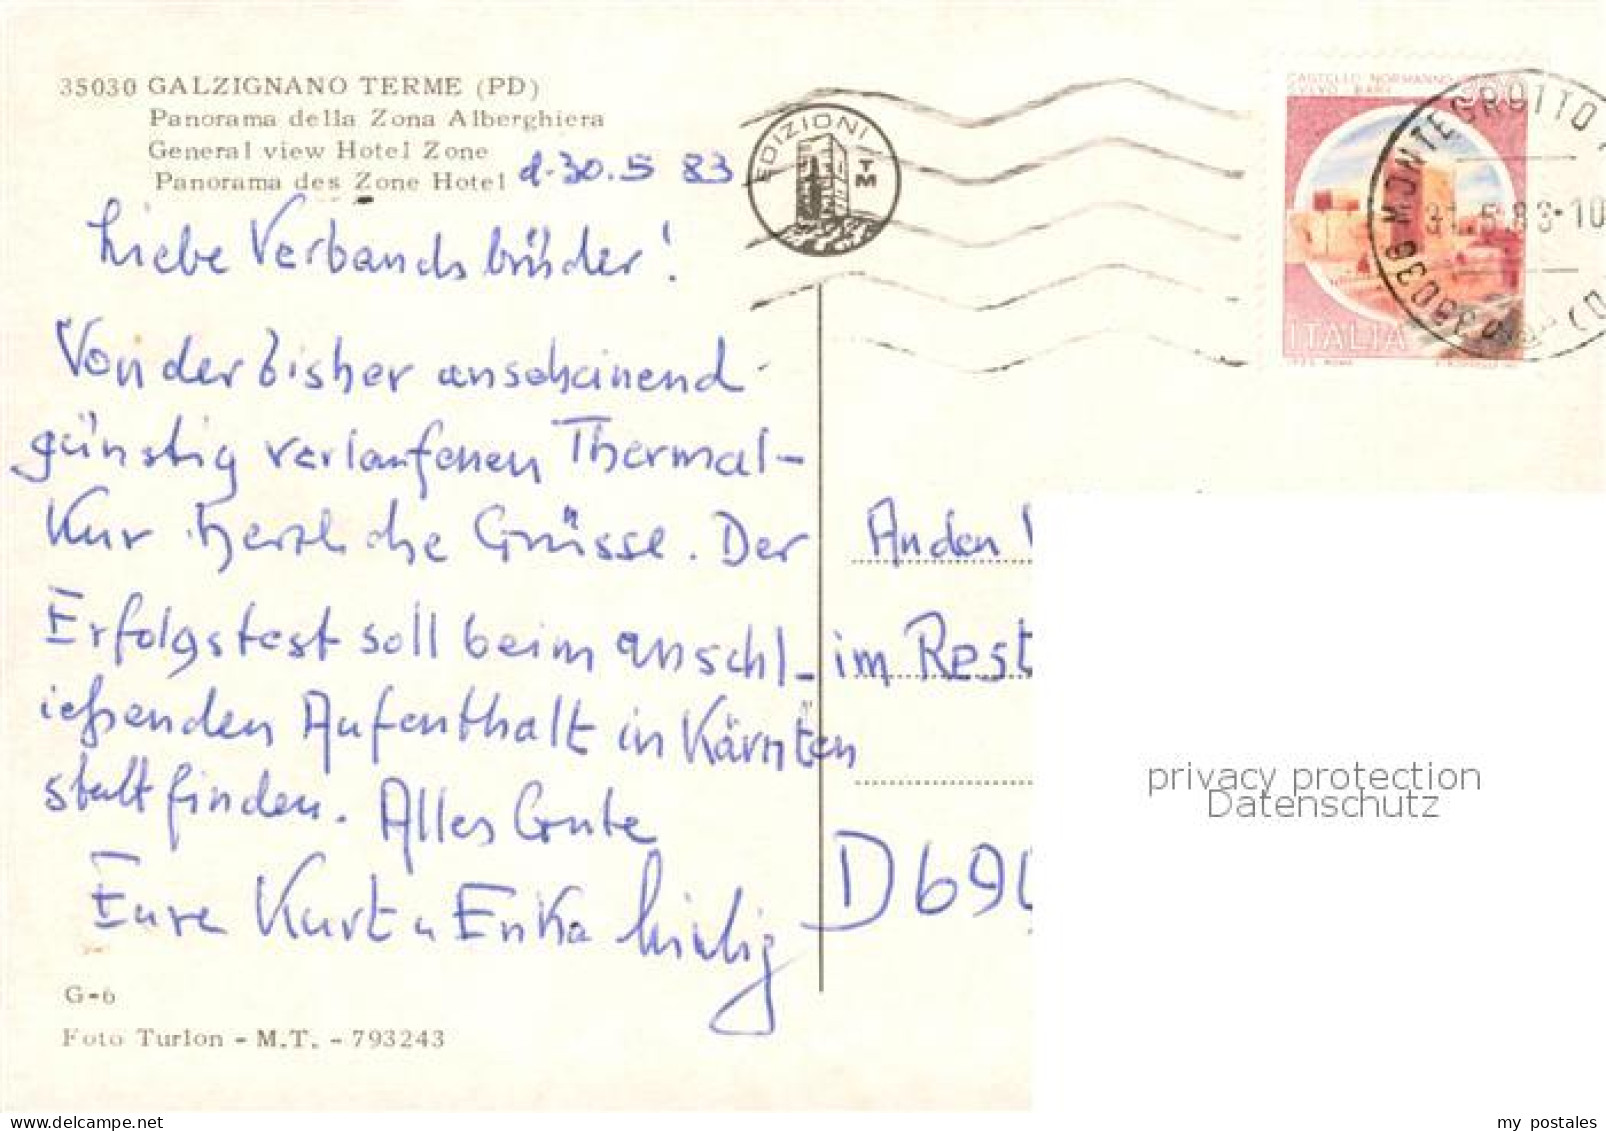 35030 GALZIGNANO TERME (PD)
Panorama della Zona Alberghiera
General view Hotel Zone
Panorama des Zone Hotel
d. 30.5 83
EDIZIONI
TM
CASTELLO NORMANNO
SVEVO BARI
ITALIA
MONTEGROTTO
31.5.83-10
Liebe Verbandsbrüder!
Von der bisher anscheinend
günstig verlaufenen Thermal-
Kur herzliche Grüsse. Der
Erfolgstest soll beim anschl-
ießenden Aufenthalt in Kärnten
stattfinden. Alles Gute
Eure Kurt u Erika
An den
im Rest
D 690
privacy protection
Datenschutz
G-6
Foto Turlon - M.T. - 793243
delcampe.net
my_postales